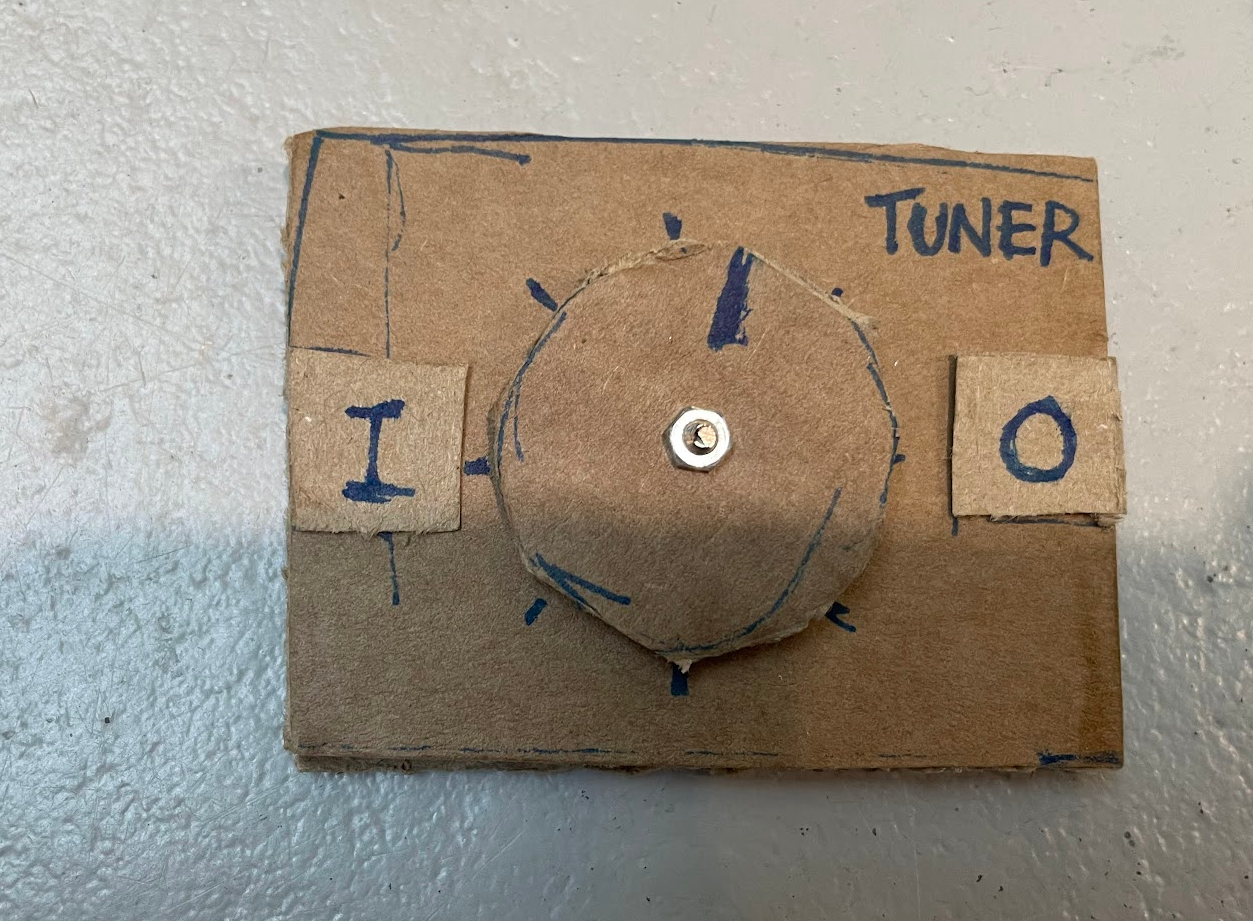 TUNER
I
O